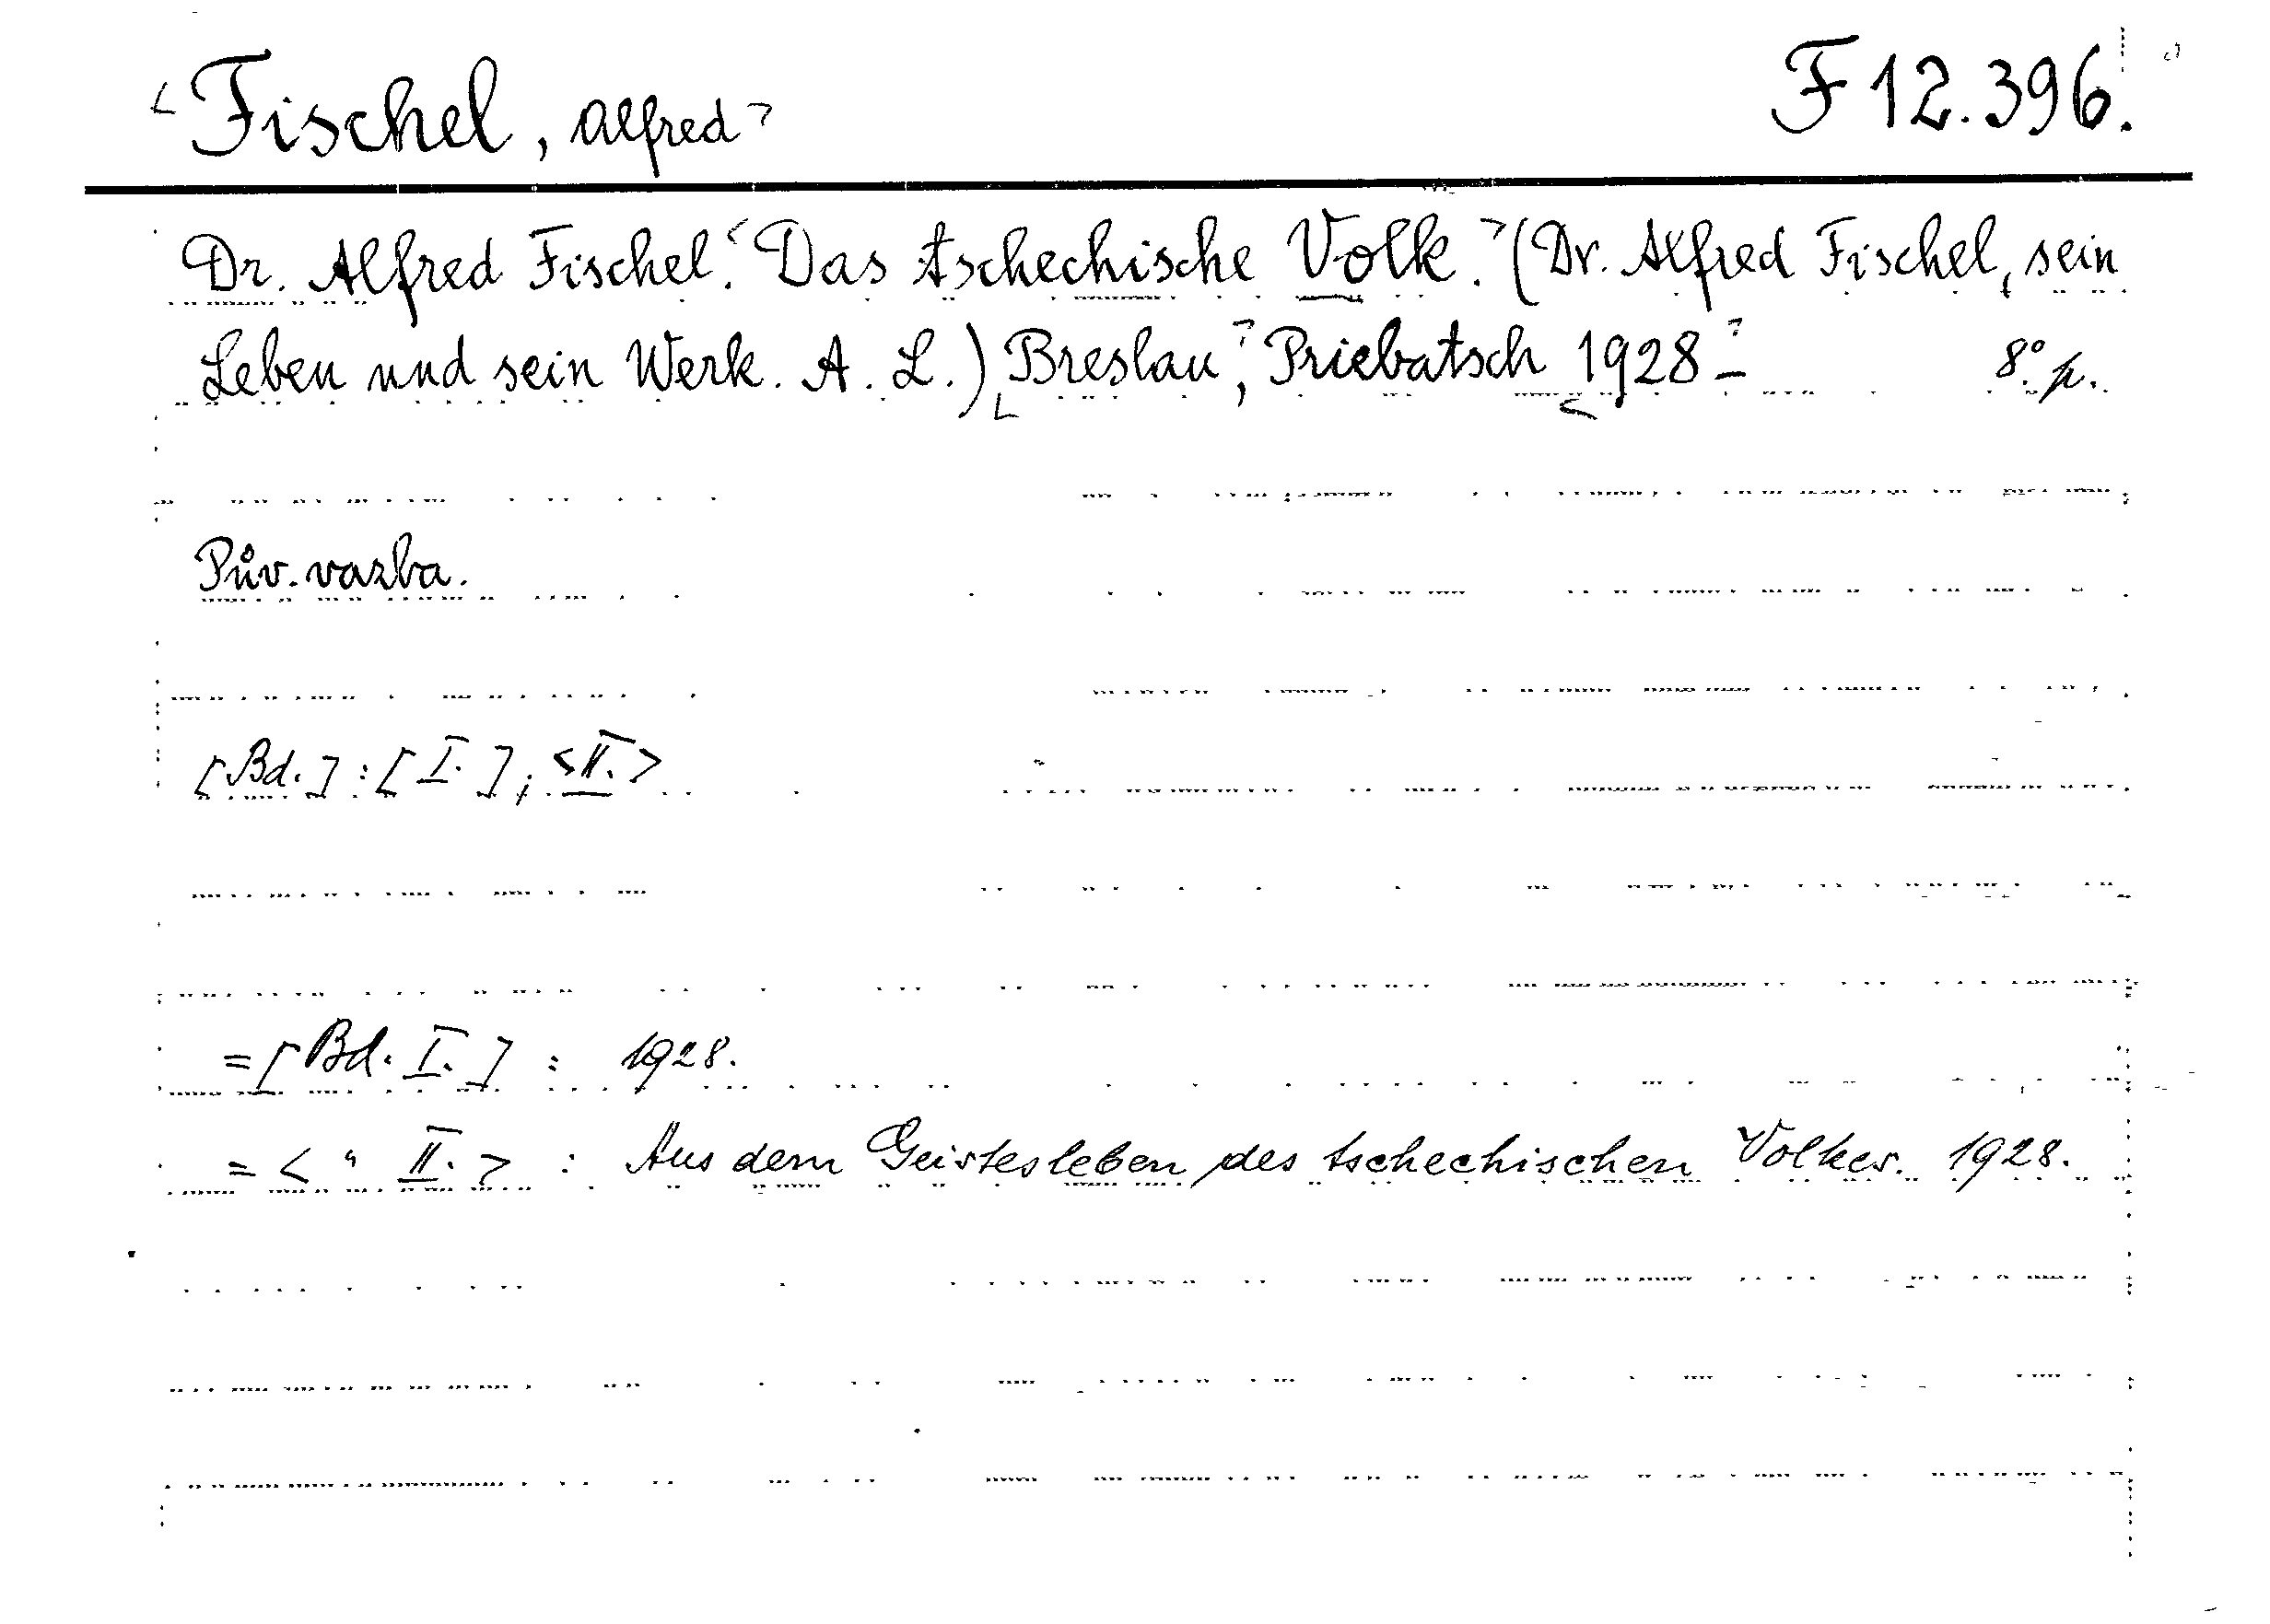 <Fischel, Alfred> F 12.396.
Dr. Alfred Fischel. <Das tschechische Volk.> (Dr. Alfred Fischel, sein
Leben und sein Werk. A. L.) <Breslau>, Priebatsch <1928 -> 8° p.
Pův. vazba.
[Bd.] : [I.] ; <II.>
= [Bd. I.] : 1928.
= < " II. > : Aus dem Geistesleben des tschechischen Volkes. 1928.